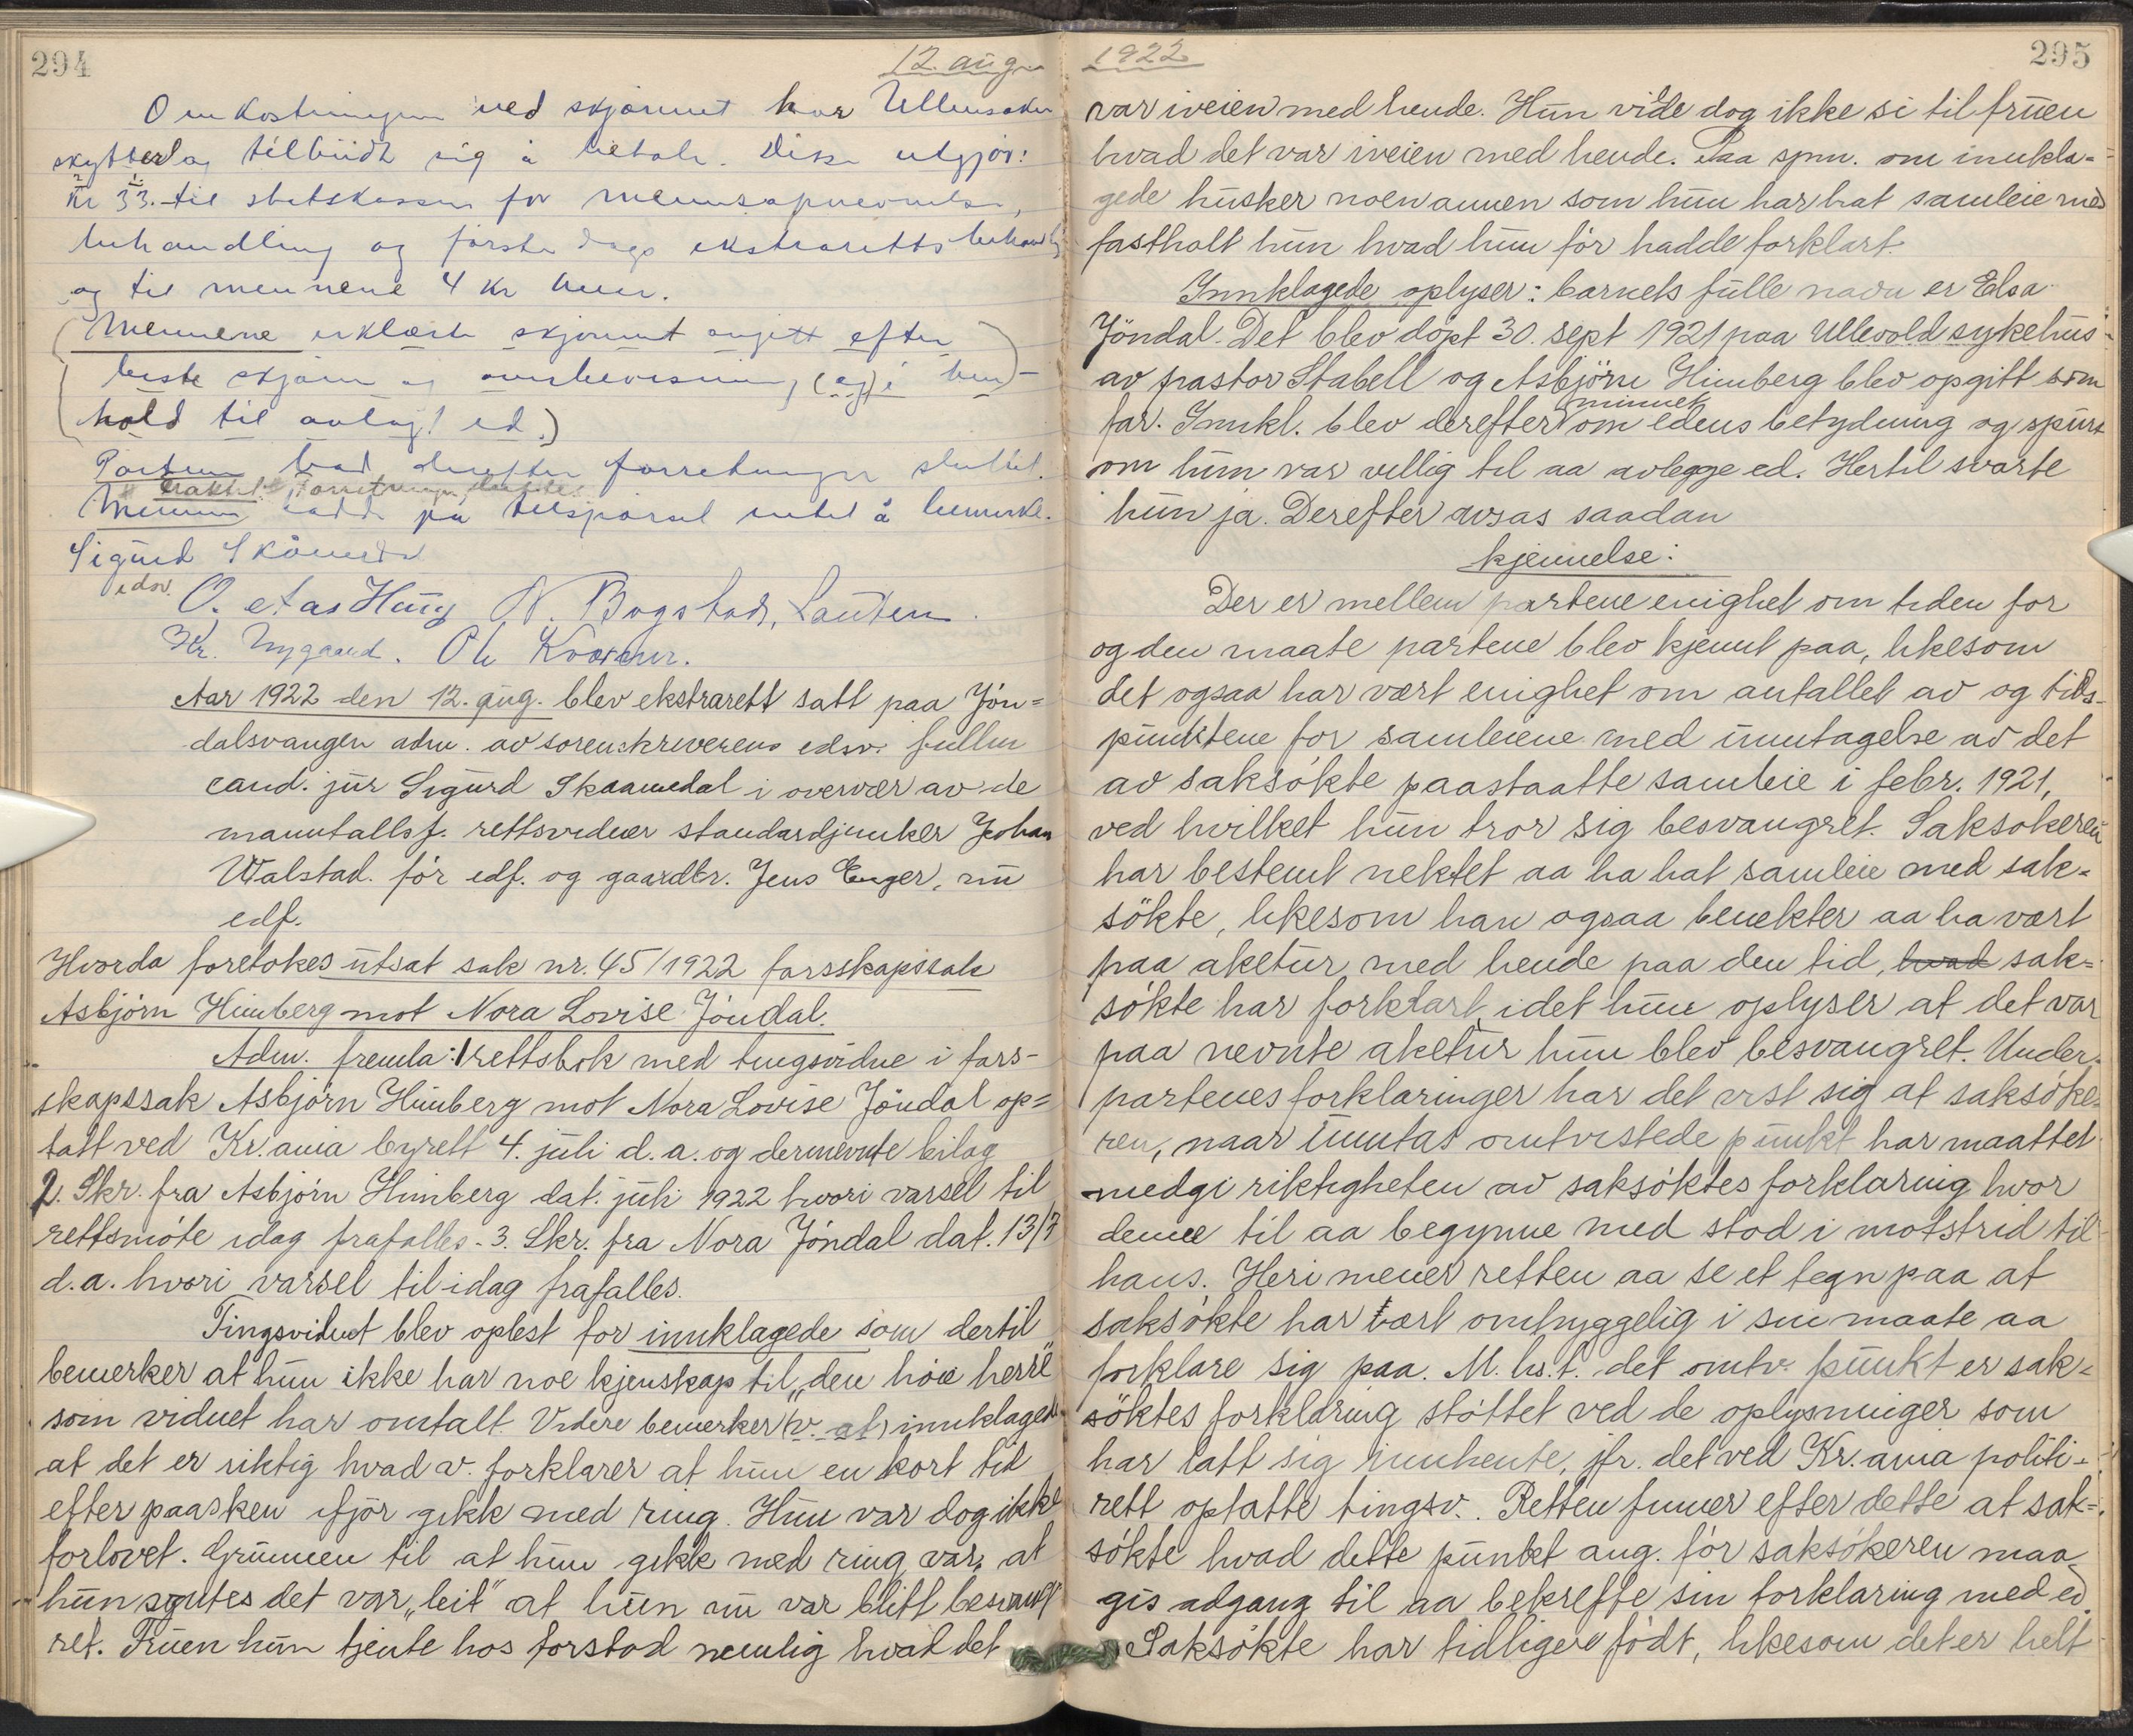 294
12. aug.
Omkostningene ved skjønnet har Ullensaker
skytterlag tilbudt sig å betale. Disse utgjør:
Kr 33. til statskassen for mennsopnevnelse,
behandling og første dags ekstraretts behandl.
og til mennene 4 Kr hver.
(Mennene erklærte skjønnet avgitt efter
beste skjønn og overbevisning (og) i hen-
hold til avlagt ed.)
Partene bad derefter forretningen sluttet.
Mennene hadde på tilspørsel intet å bemerke.
Sigurd Skåmedal
edsv.
O. Aas Haug N. Bogstad, Lauten.
Kr. Nygaard. Ole Kværner.
Aar 1922 den 12. aug. blev ekstrarett satt paa Jön-
dalsvangen adm. av sorenskriverens edsv. fullm
cand. jur Sigurd Skaamedal i overvær av de
manntallsf. rettsvidner standardjunker Johan
Walstad. før edf. og gaardbr. Jens Enger, nu
edf.
Hvorda foretokes utsat sak nr. 45/1922 farsskapssak
Asbjörn Himberg mot Nora Lovise Jöndal.
Adm. fremla: 1 rettsbok med tingsvidne i fars-
skapssak Asbjörn Himberg mot Nora Lovise Jöndal op=
tatt ved Kr.ania byrett 4. juli d.a. og dermevnte bilag
2. Skr. fra Asbjörn Himberg dat. juli 1922 hvori varsel til
rettsmöte idag frafalles. 3. Skr. fra Nora Jöndal dat. 13/7
d.a. hvori varsel til idag frafalles.
Tingsvidnet blev oplest for innklagede som dertil
bemerker at hun ikke har noe kjenskap til "den höie herre"
som vidnet har omtalt. Videre bemerker (v. at) innklagede
at det er riktig hvad v. forklarer at hun en kort tid
efter paasken ifjör gikk med ring. Hun var dog ikke
forlovet. Grunnen til at hun gikk med ring var, at
hun syntes det var "leit" at hun nu var blitt besvang-
ret. Fruen hun tjente hos forstod nemlig hvad det
1922
295
var iveien med hende. Hun vilde dog ikke si til fruen
hvad det var iveien med hende. Paa spm. om innkla-
gede husker noen annen som hun har hat samleie med
fastholt hun hvad hun för hadde forklart.
Innklagede oplyser: barnets fulle navn er Elsa
Jöndal. Det blev döpt 30. sept 1921 paa Ullevold sykehus
av pastor Stabell og Asbjörn Himberg blev opgitt som
far. Innkl. blev derefter minnet om edens betydning og spurt
om hun var villig til aa avlegge ed. Hertil svarte
hun ja. Derefter avsas saadan
kjennelse:
Der er mellem partene enighet om tiden for
og den maate partene blev kjennt paa, likesom
det ogsaa har vært enighet om antallet av og tids-
punktene for samleiene med unntagelse av det
av saksökte paastaatte samleie i febr. 1921,
ved hvilket hun tror sig besvangret. Saksökeren
har bestemt nektet aa ha hat samleie med sak-
sökte, likesom han ogsaa benekter aa ha vært
paa aketur med hende paa den tid, hvad sak-
sökte har forklart, idet hun oplyser at det var
paa nevnte aketur hun blev besvangret. Under
partenes forklaringer har det vist sig at saksöke-
ren, naar unntas omtvistede punkt har maattet
medgi riktigheten av saksöktes forklaring hvor
denne til aa begynne med stod i motstrid til
hans. Heri mener retten aa se et tegn paa at
saksökte har vært omhyggelig i sin maate aa
forklare sig paa. M.h.t. det omtv. punkt er sak-
söktes forklaring stöttet ved de oplysninger som
har latt sig innhente, jfr. det ved Kr.ania politi-
rett optatte tingsv.. Retten finner efter dette at sak-
sökte hvad dette punkt ang. för saksökeren maa
gis adgang til aa bekrefte sin forklaring med ed.
Saksökte har tidligere födt, likesom det er helt